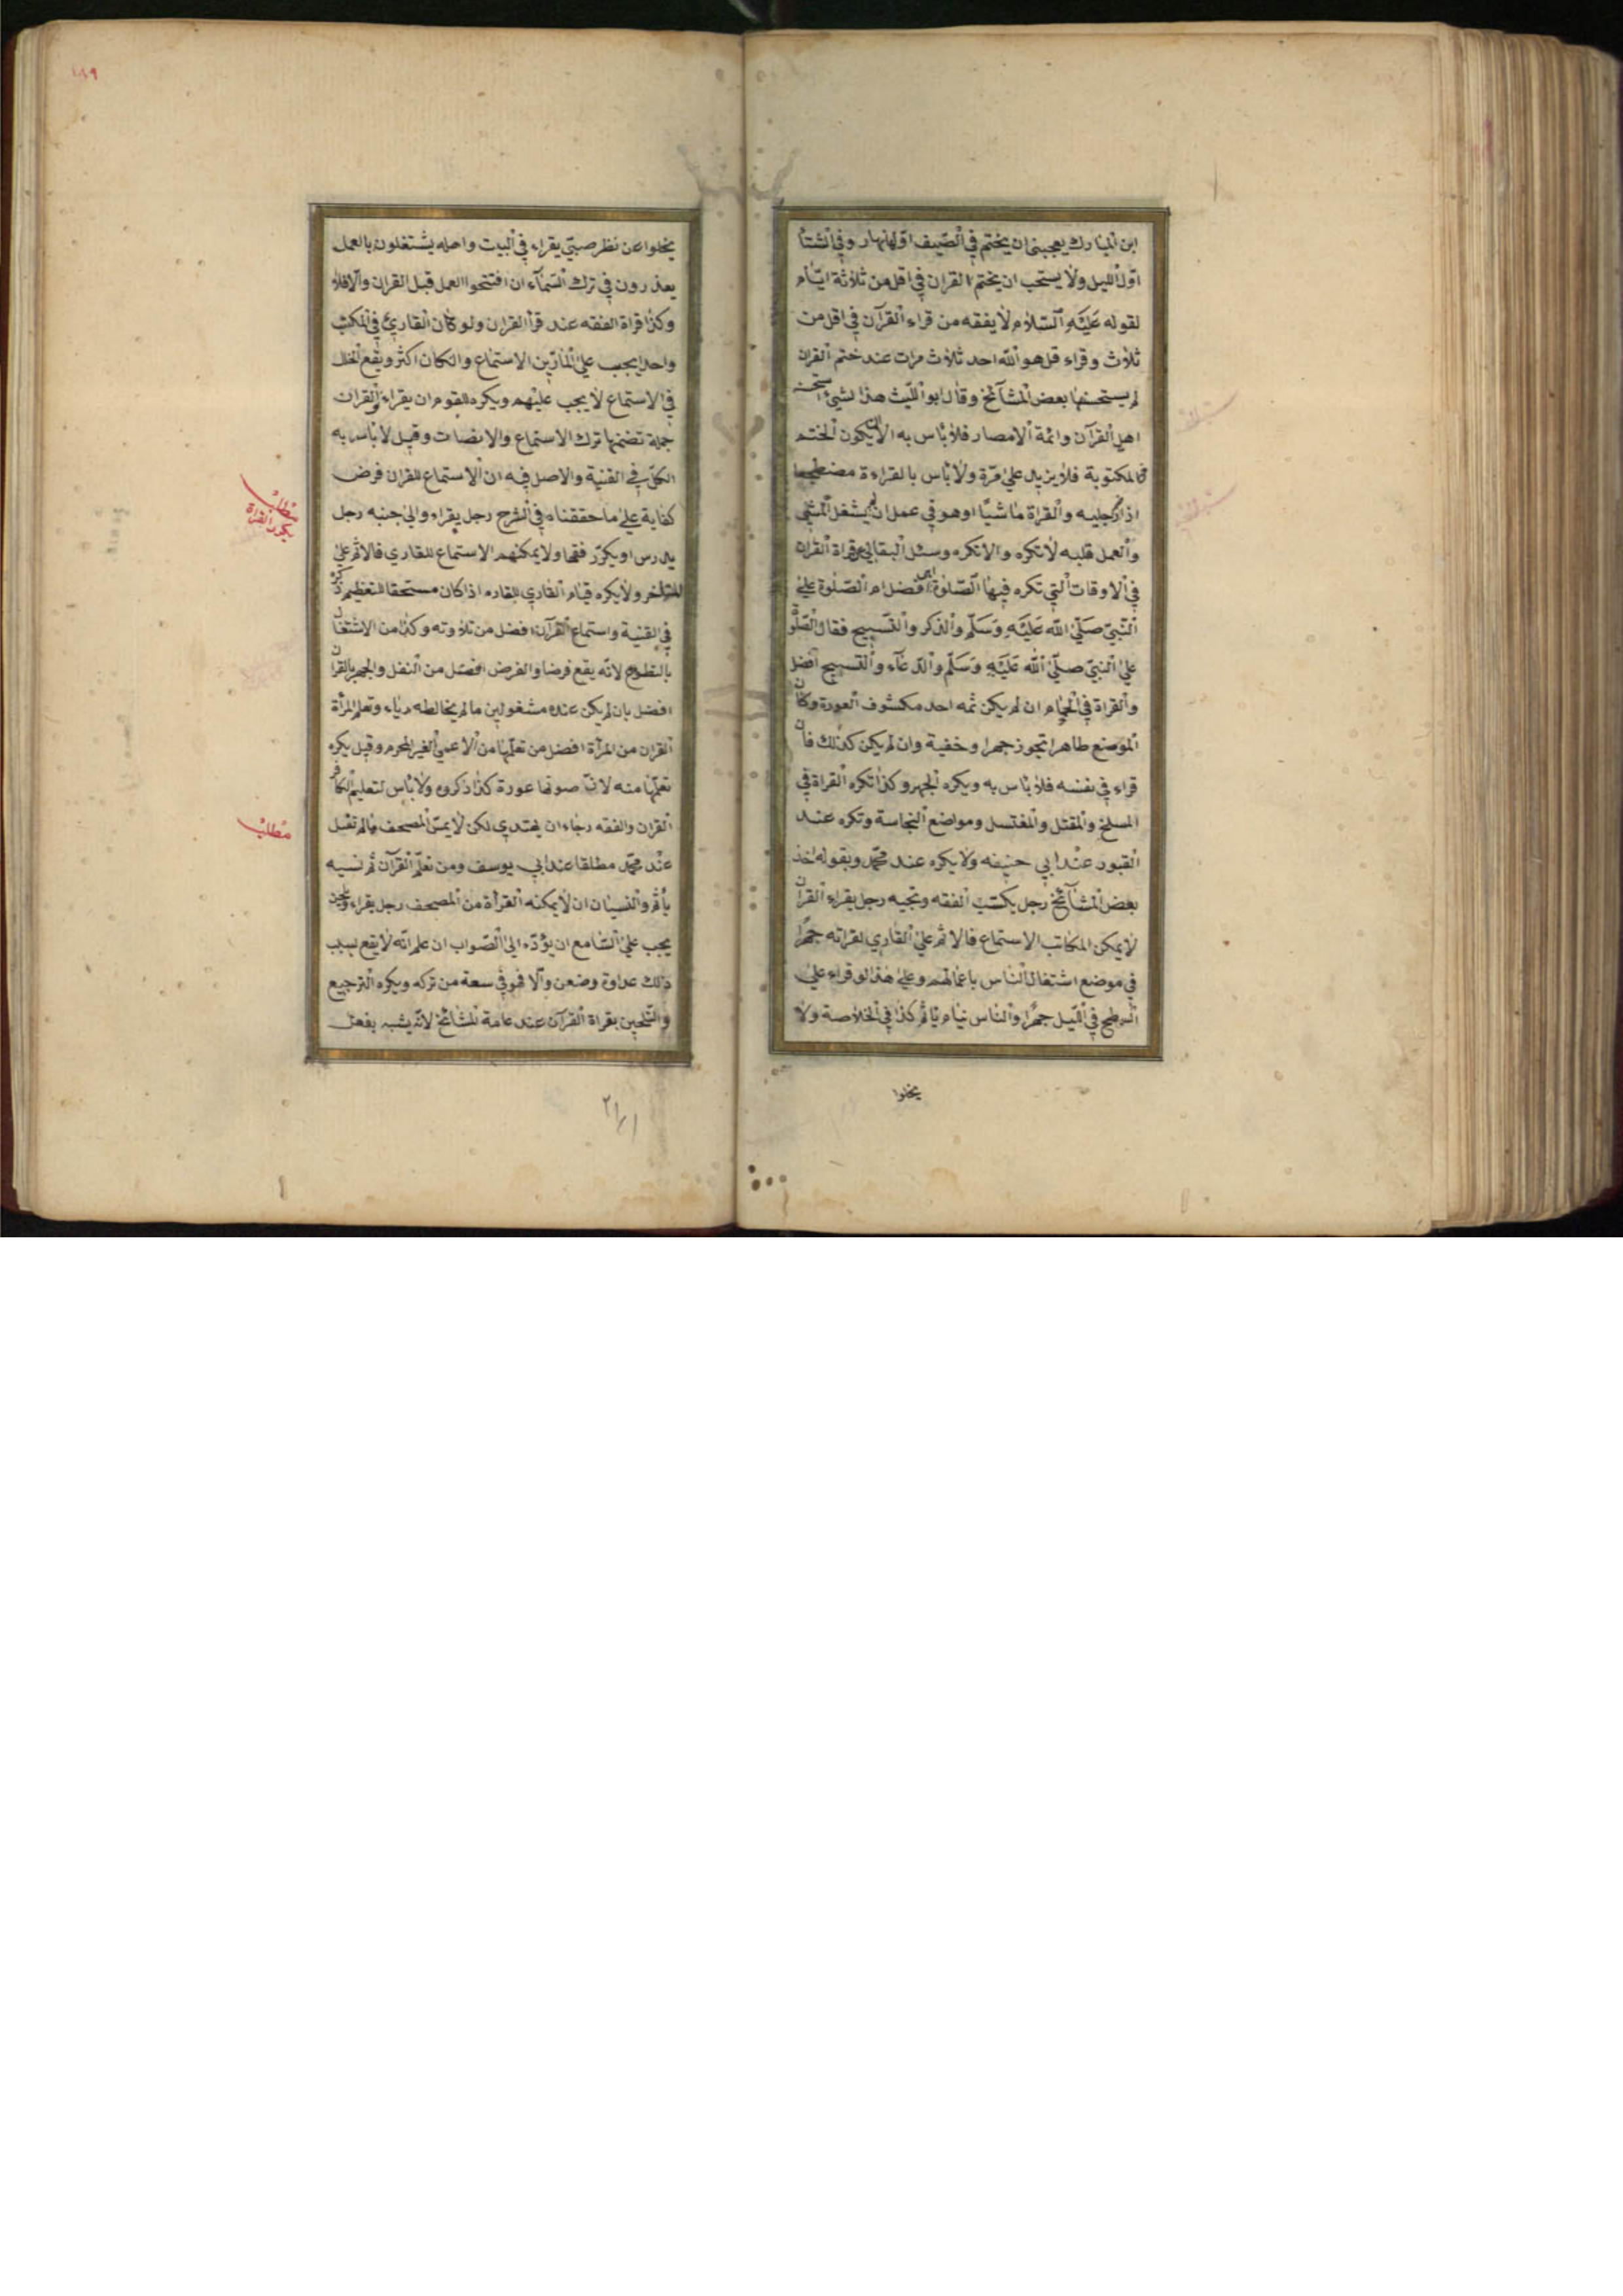 ابن المبارك يعجبنى ان يختم في الصّيف اوّل النهار وفي الشتا
اوّل الليل ولا يستحب ان يختم القران في اقل من ثلاثة ايّام
لقوله عَلَيْهِ السّلام لا يفقه من قراء القرآن في اقل من
ثلاث وقراء قل هو الله احد ثلاث مرات عند ختم القران
لم يستحسنها بعض المشآئخ وقال ابو اللّيث هذا شيء استحسنه
اهل القرآن وائمة الامصار فلا بأس به الا ان يكون الختم
في المكتوبة فلا يزيد على مرّة ولا بأس بالقراءة مضطجعا
اذا رجليه والقراة ماشيًا او هو في عمل ان لم يشغل المشي
والعمل قلبه لا تكره والا تكره وسئل البقالي عن قراة القران
في الاوقات التي تكره فيها الصّلوة اهي افضل ام الصّلوة على
النّبيّ صَلّى الله عَلَيْهِ وَسَلّم والذكر والتسبيح فقال الصّلوة
على النبيّ صلّى الله عَلَيْهِ وَسَلّم والدّعآء والتسبيح افضل
والقراة في الحمّام ان لم يكن ثمه احد مكشوف العورة وكان
الموضع طاهرا تجوز جهرا وخفية وان لم يكن كذلك فان
قراء في نفسه فلا بأس به ويكره الجهر وكذا تكره القراة في
المسلخ والمقتل والمغتسل ومواضع النجاسة وتكره عند
القبور عند ابي حنيفه ولا يكره عند محمّد وبقوله اخذ
بعض المشآئخ رجل يكتب الفقه وبجنبه رجل يقراء القران
لا يمكن المكاتب الاستماع فالاثم على القاري لقراته جهرًا
في موضع اشتغال الناس باعمالهم وعلى هذا لو قراء على
السطح في اللّيل جهرًا والناس نيام يأثم كذا في الخلاصة ولا
يخلوا
١٨٩
يخلوا عن نظر صبيّ يقراء في البيت واهله يشتغلون بالعمل
يعذرون في ترك السّمآء ان افتتحوا العمل قبل القران والا فلا
وكذا قراة الفقه عند قرأ القران ولو كان القاريّ في المكتب
واحدا يجب على المارّين الاستماع وان كان اكثر ويقع الخلل
في الاستماع لا يجب عليهم ويكره للقوم ان يقراء القران
جملة تضمنها ترك الاستماع والانصات وقيل لا بأس به
الكلّ في القنية والاصل فيه ان الاستماع للقران فرض
كفاية على ما حققناه في الشرح رجل يقراء والى جنبه رجل
يدرس او يكرّر فقها ولا يمكنهم الاستماع للقاري فالاثم على
المتأخر ولا يكره قيام القاري للقادم اذا كان مستحقا للتعظيم ذكره
في القنية واستماع القرآن افضل من تلاوته وكذا من الاشتغال
بالتطوع لانّه يقع فرضا والفرض افضل من النفل والجهر بالقران
افضل بان لم يكن عنده مشغولين ما لم يخالطه رياء وتعلم المرأة
القران من المرأة افضل من تعلّمها من الاعمى الغير المحرم وقيل يكره
تعلّمها منه لانّ صوتها عورة كذا ذكروه ولا بأس لتعليم الكافر
القران والفقه رجاء ان يهتدي لكن لا يمسّ المصحف ما لم تغسل
عند محمّد مطلقا عند ابي يوسف ومن تعلّم القرآن ثم نسيه
يأثم والنسيان ان لا يمكنه القرأة من المصحف رجل يقراء ويلحن
يجب على السّامع ان يؤدّه الى الصّواب ان علم انّه لا يقع بسبب
ذلك عداوة وضعن والا فهو في سعة من تركه ويكره الترجيع
والتّلحين بقراة القرآن عند عامة المشائخ لانّه يشبه بفعل
مطلب
يكره القراة
مطلب